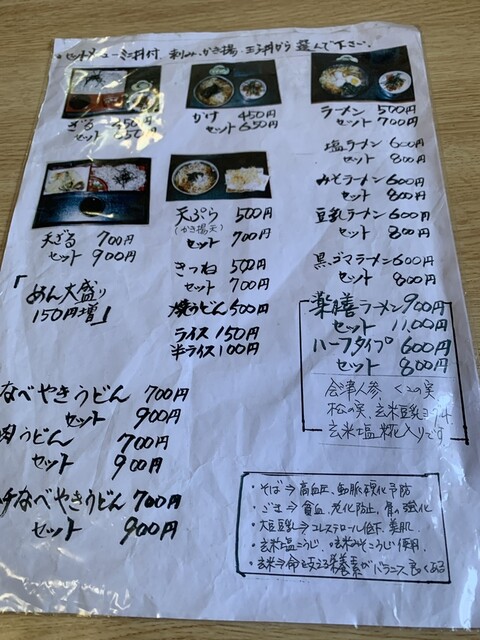 ・セットメニューミニ丼付 刻み、かき揚 玉子丼から選んで下さい。
ざる 450円
セット 650円
かけ 450円
セット 650円
ラーメン 500円
セット 700円
塩ラーメン 600円
セット 800円
みそラーメン 600円
セット 800円
豆乳ラーメン 600円
セット 800円
黒ゴマラーメン 600円
セット 800円
天ざる 700円
セット 900円
天ぷら 500円
(かき揚天)
セット 700円
きつね 500円
セット 700円
焼うどん 500円
ライス 150円
半ライス 100円
「めん大盛り
150円増」
薬膳ラーメン 900円
セット 1100円
ハーフタイプ 600円
セット 800円
会津人参、くこの実
松の実、玄米豆乳ヨーグルト
玄米塩糀入りです
なべやきうどん 700円
セット 900円
肉うどん 700円
セット 900円
チなべやきうどん 700円
セット 900円
・そば⇒高血圧、動脈硬化予防
・ごま⇒貧血、老化防止、骨の強化
・大豆豆乳⇒コレステロール低下、美肌
・玄米塩こうじ、玄米みそこうじ使用
・玄米⇒命を支える栄養素がバランス良くある